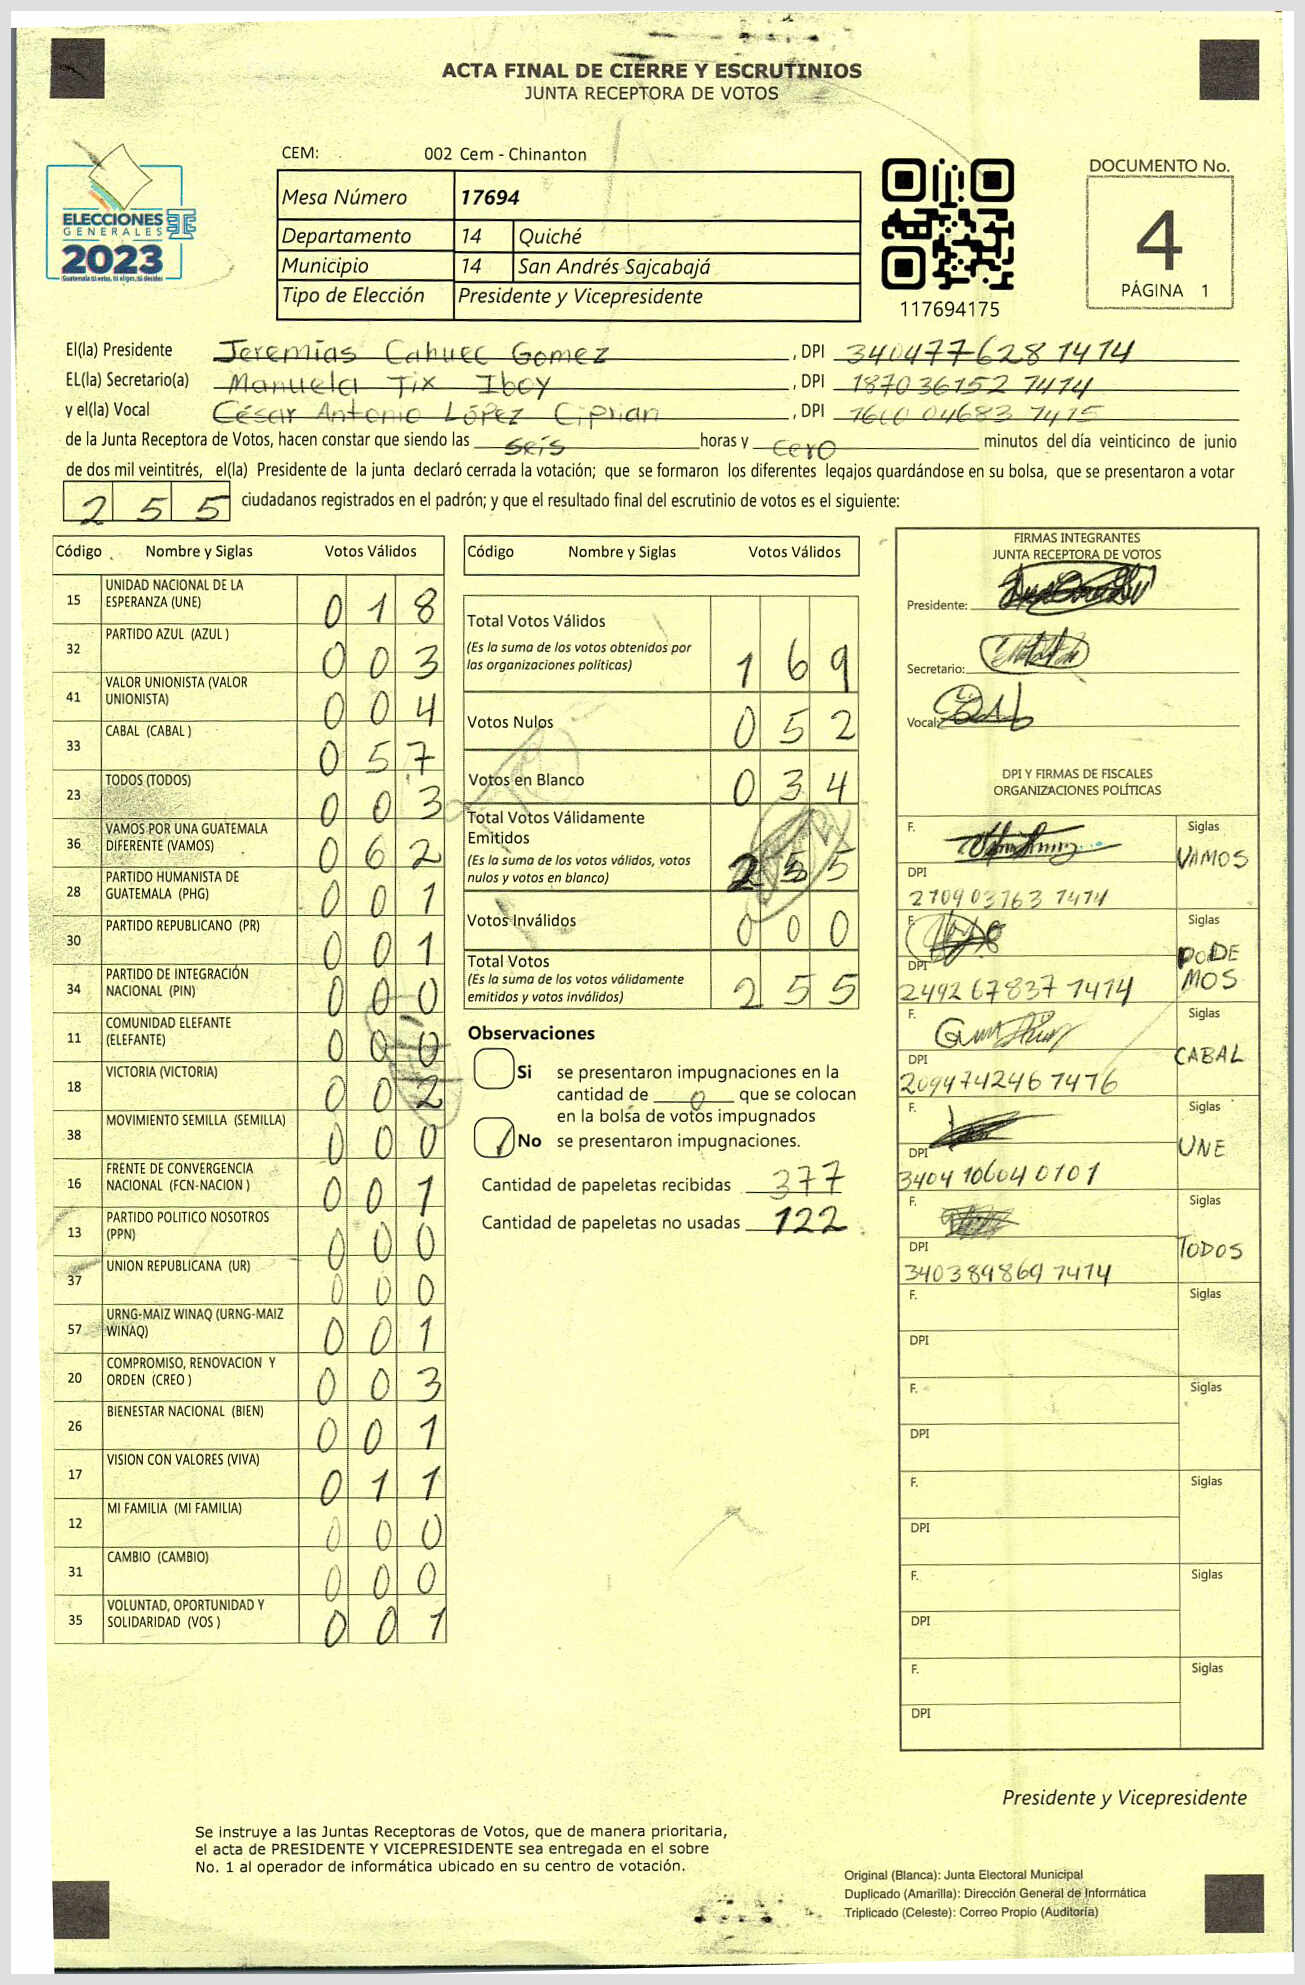 ACTA FINAL DE CIERRE Y ESCRUTINIOS
JUNTA RECEPTORA DE VOTOS
CEM: 002 Cem - Chinanton
ELECCIONES
GENERALES
2023
Guatemala tú votas, tú eliges, tú decides
Mesa Número 17694
Departamento 14 Quiché
Municipio 14 San Andrés Sajcabajá
Tipo de Elección Presidente y Vicepresidente
117694175
DOCUMENTO No.
4
PÁGINA 1
El(la) Presidente Jeremías Cahuec Gomez , DPI 340477628 1414
EL(la) Secretario(a) Manuela Tix Iboy , DPI 187036152 1414
y el(la) Vocal César Antonio López Ciprian , DPI 1600 04683 1415
de la Junta Receptora de Votos, hacen constar que siendo las seis horas y cero minutos del día veinticinco de junio
de dos mil veintitrés, el(la) Presidente de la junta declaró cerrada la votación; que se formaron los diferentes legajos guardándose en su bolsa, que se presentaron a votar
255 ciudadanos registrados en el padrón; y que el resultado final del escrutinio de votos es el siguiente:
Código Nombre y Siglas Votos Válidos
15 UNIDAD NACIONAL DE LA ESPERANZA (UNE) 018
32 PARTIDO AZUL (AZUL ) 003
41 VALOR UNIONISTA (VALOR UNIONISTA) 004
33 CABAL (CABAL ) 057
23 TODOS (TODOS) 003
36 VAMOS POR UNA GUATEMALA DIFERENTE (VAMOS) 062
28 PARTIDO HUMANISTA DE GUATEMALA (PHG) 001
30 PARTIDO REPUBLICANO (PR) 001
34 PARTIDO DE INTEGRACIÓN NACIONAL (PIN) 000
11 COMUNIDAD ELEFANTE (ELEFANTE) 000
18 VICTORIA (VICTORIA) 002
38 MOVIMIENTO SEMILLA (SEMILLA) 000
16 FRENTE DE CONVERGENCIA NACIONAL (FCN-NACION ) 001
13 PARTIDO POLITICO NOSOTROS (PPN) 000
37 UNION REPUBLICANA (UR) 000
57 URNG-MAIZ WINAQ (URNG-MAIZ WINAQ) 001
20 COMPROMISO, RENOVACION Y ORDEN (CREO ) 003
26 BIENESTAR NACIONAL (BIEN) 001
17 VISION CON VALORES (VIVA) 011
12 MI FAMILIA (MI FAMILIA) 000
31 CAMBIO (CAMBIO) 000
35 VOLUNTAD, OPORTUNIDAD Y SOLIDARIDAD (VOS ) 001
Código Nombre y Siglas Votos Válidos
Total Votos Válidos 169
(Es la suma de los votos obtenidos por
las organizaciones políticas)
Votos Nulos 052
Votos en Blanco 034
Total Votos Válidamente
Emitidos 255
(Es la suma de los votos válidos, votos
nulos y votos en blanco)
Votos Inválidos 000
Total Votos 255
(Es la suma de los votos válidamente
emitidos y votos inválidos)
Observaciones
Si se presentaron impugnaciones en la
cantidad de 0 que se colocan
en la bolsa de votos impugnados
No se presentaron impugnaciones.
Cantidad de papeletas recibidas 377
Cantidad de papeletas no usadas 122
FIRMAS INTEGRANTES
JUNTA RECEPTORA DE VOTOS
Presidente:
Secretario:
Vocal:
DPI Y FIRMAS DE FISCALES
ORGANIZACIONES POLÍTICAS
F. Siglas
VAMOS
DPI
270903763 1414
F. Siglas
PODEMOS
DPI
2492 67837 1414
F. Siglas
CABAL
DPI
209474246 1416
F. Siglas
UNE
DPI
3404 10604 0101
F. Siglas
TODOS
DPI
340389869 1414
F. Siglas
DPI
F. Siglas
DPI
F. Siglas
DPI
F. Siglas
DPI
F. Siglas
DPI
Presidente y Vicepresidente
Se instruye a las Juntas Receptoras de Votos, que de manera prioritaria,
el acta de PRESIDENTE Y VICEPRESIDENTE sea entregada en el sobre
No. 1 al operador de informática ubicado en su centro de votación.
Original (Blanca): Junta Electoral Municipal
Duplicado (Amarilla): Dirección General de Informática
Triplicado (Celeste): Correo Propio (Auditoría)